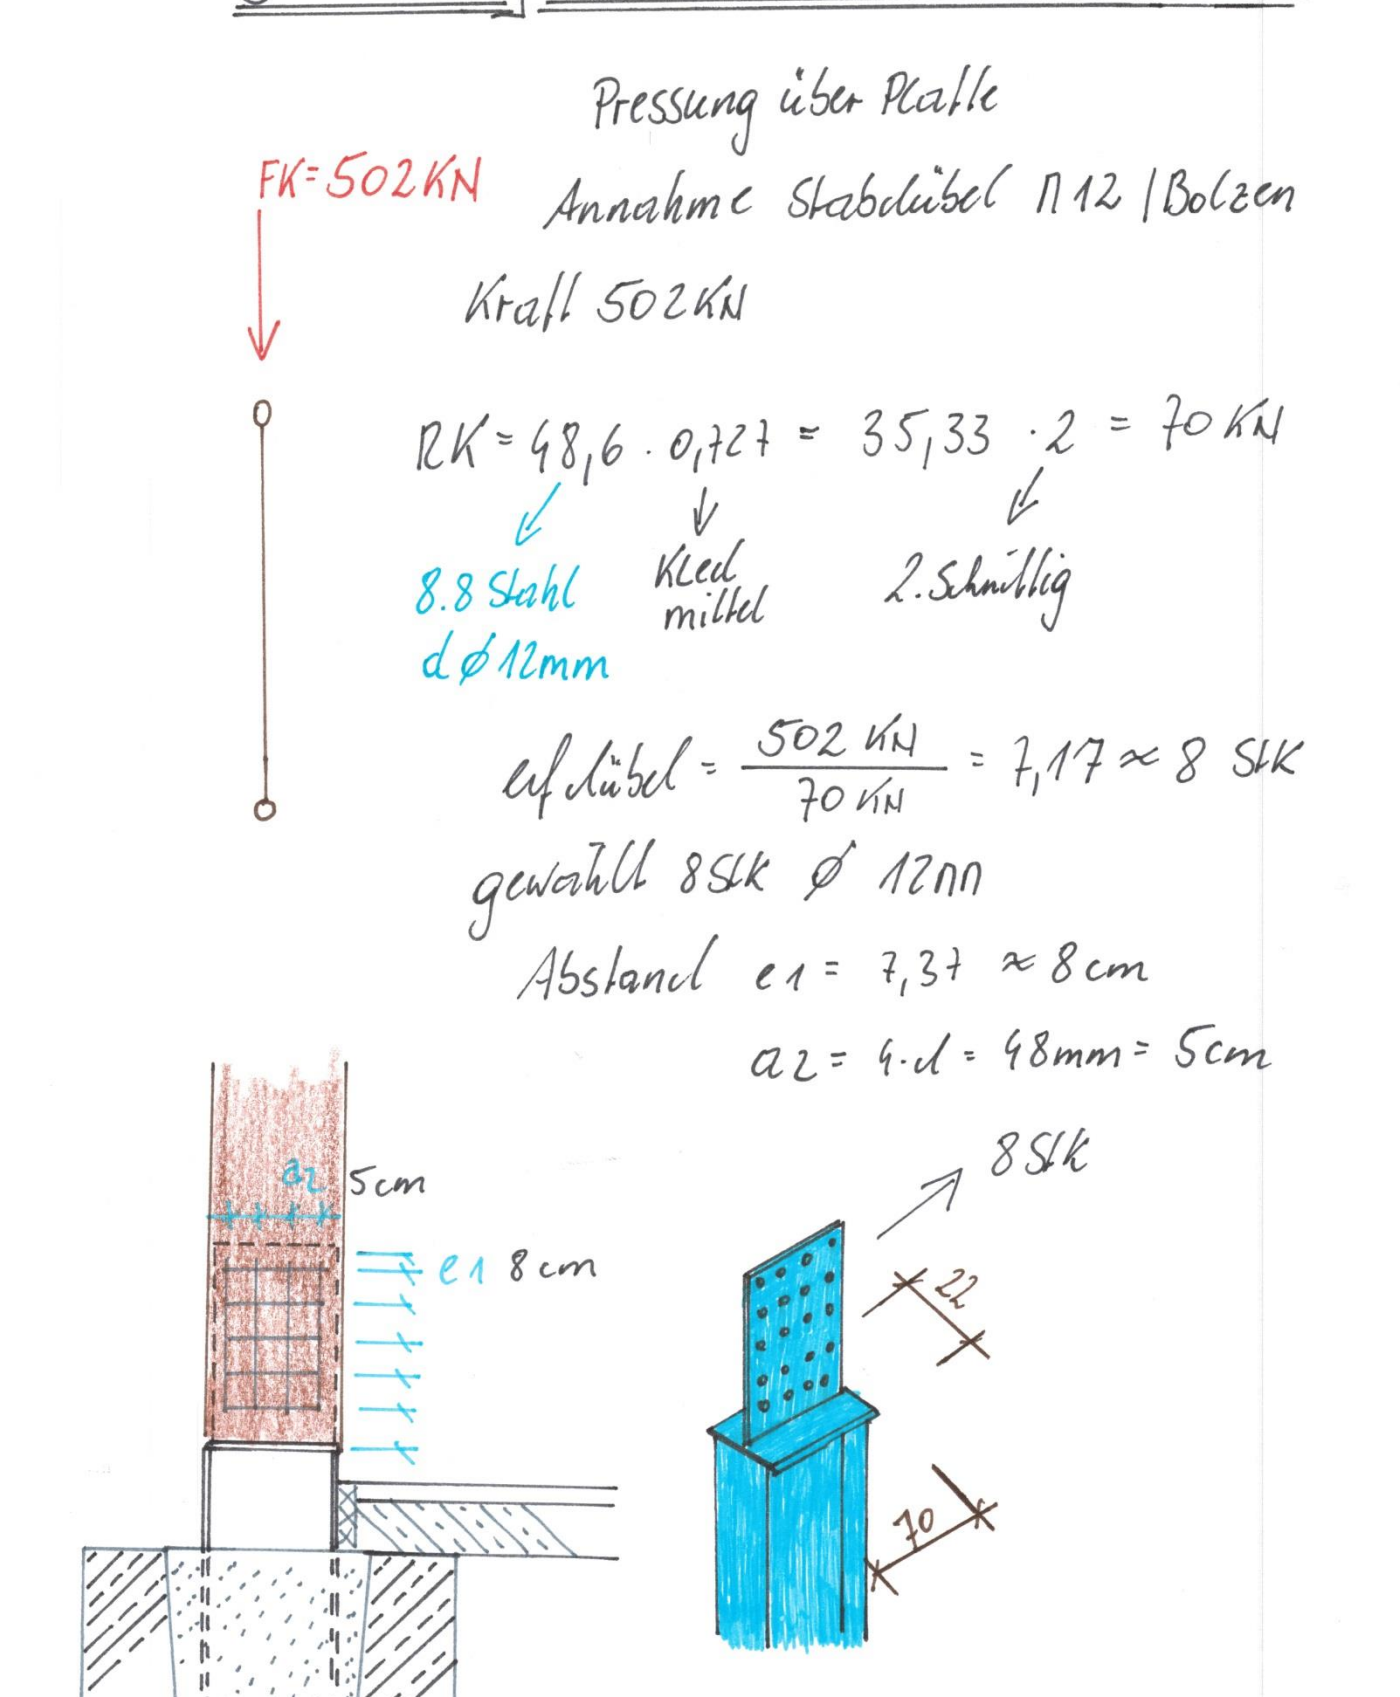 Pressung über Platte
FK=502KN
Annahme Stabdübel M12 / Bolzen
Kraft 502KN
RK = 48,6 · 0,727 = 35,33 · 2 = 70 KN
8.8 Stahl
d ϕ 12mm
Kled
mittel
2. Schnittig
erf dübel = 502 KN / 70 KN = 7,17 ≈ 8 Stk
gewählt 8Stk ϕ 12mm
Abstand e1 = 7,37 ≈ 8cm
a2 = 4·d = 48mm = 5cm
8 Stk
a2 5cm
e1 8cm
22
70